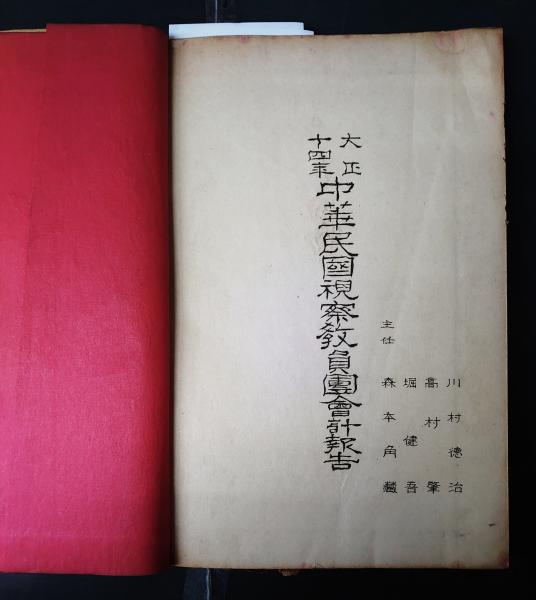 川村德治
高村肇
堀健吾
主任 森本角藏
大正
十四年
中華民國視察敎員團會計報告